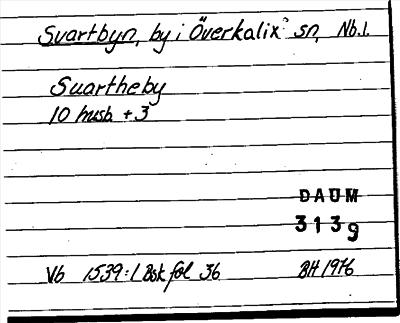 Svartbyn, by i Överkalix sn, Nb.l.
Suartheby
10 husb. + 3
DAUM
3139
Vb 1539:1 Bsk fol 36 BH 1976